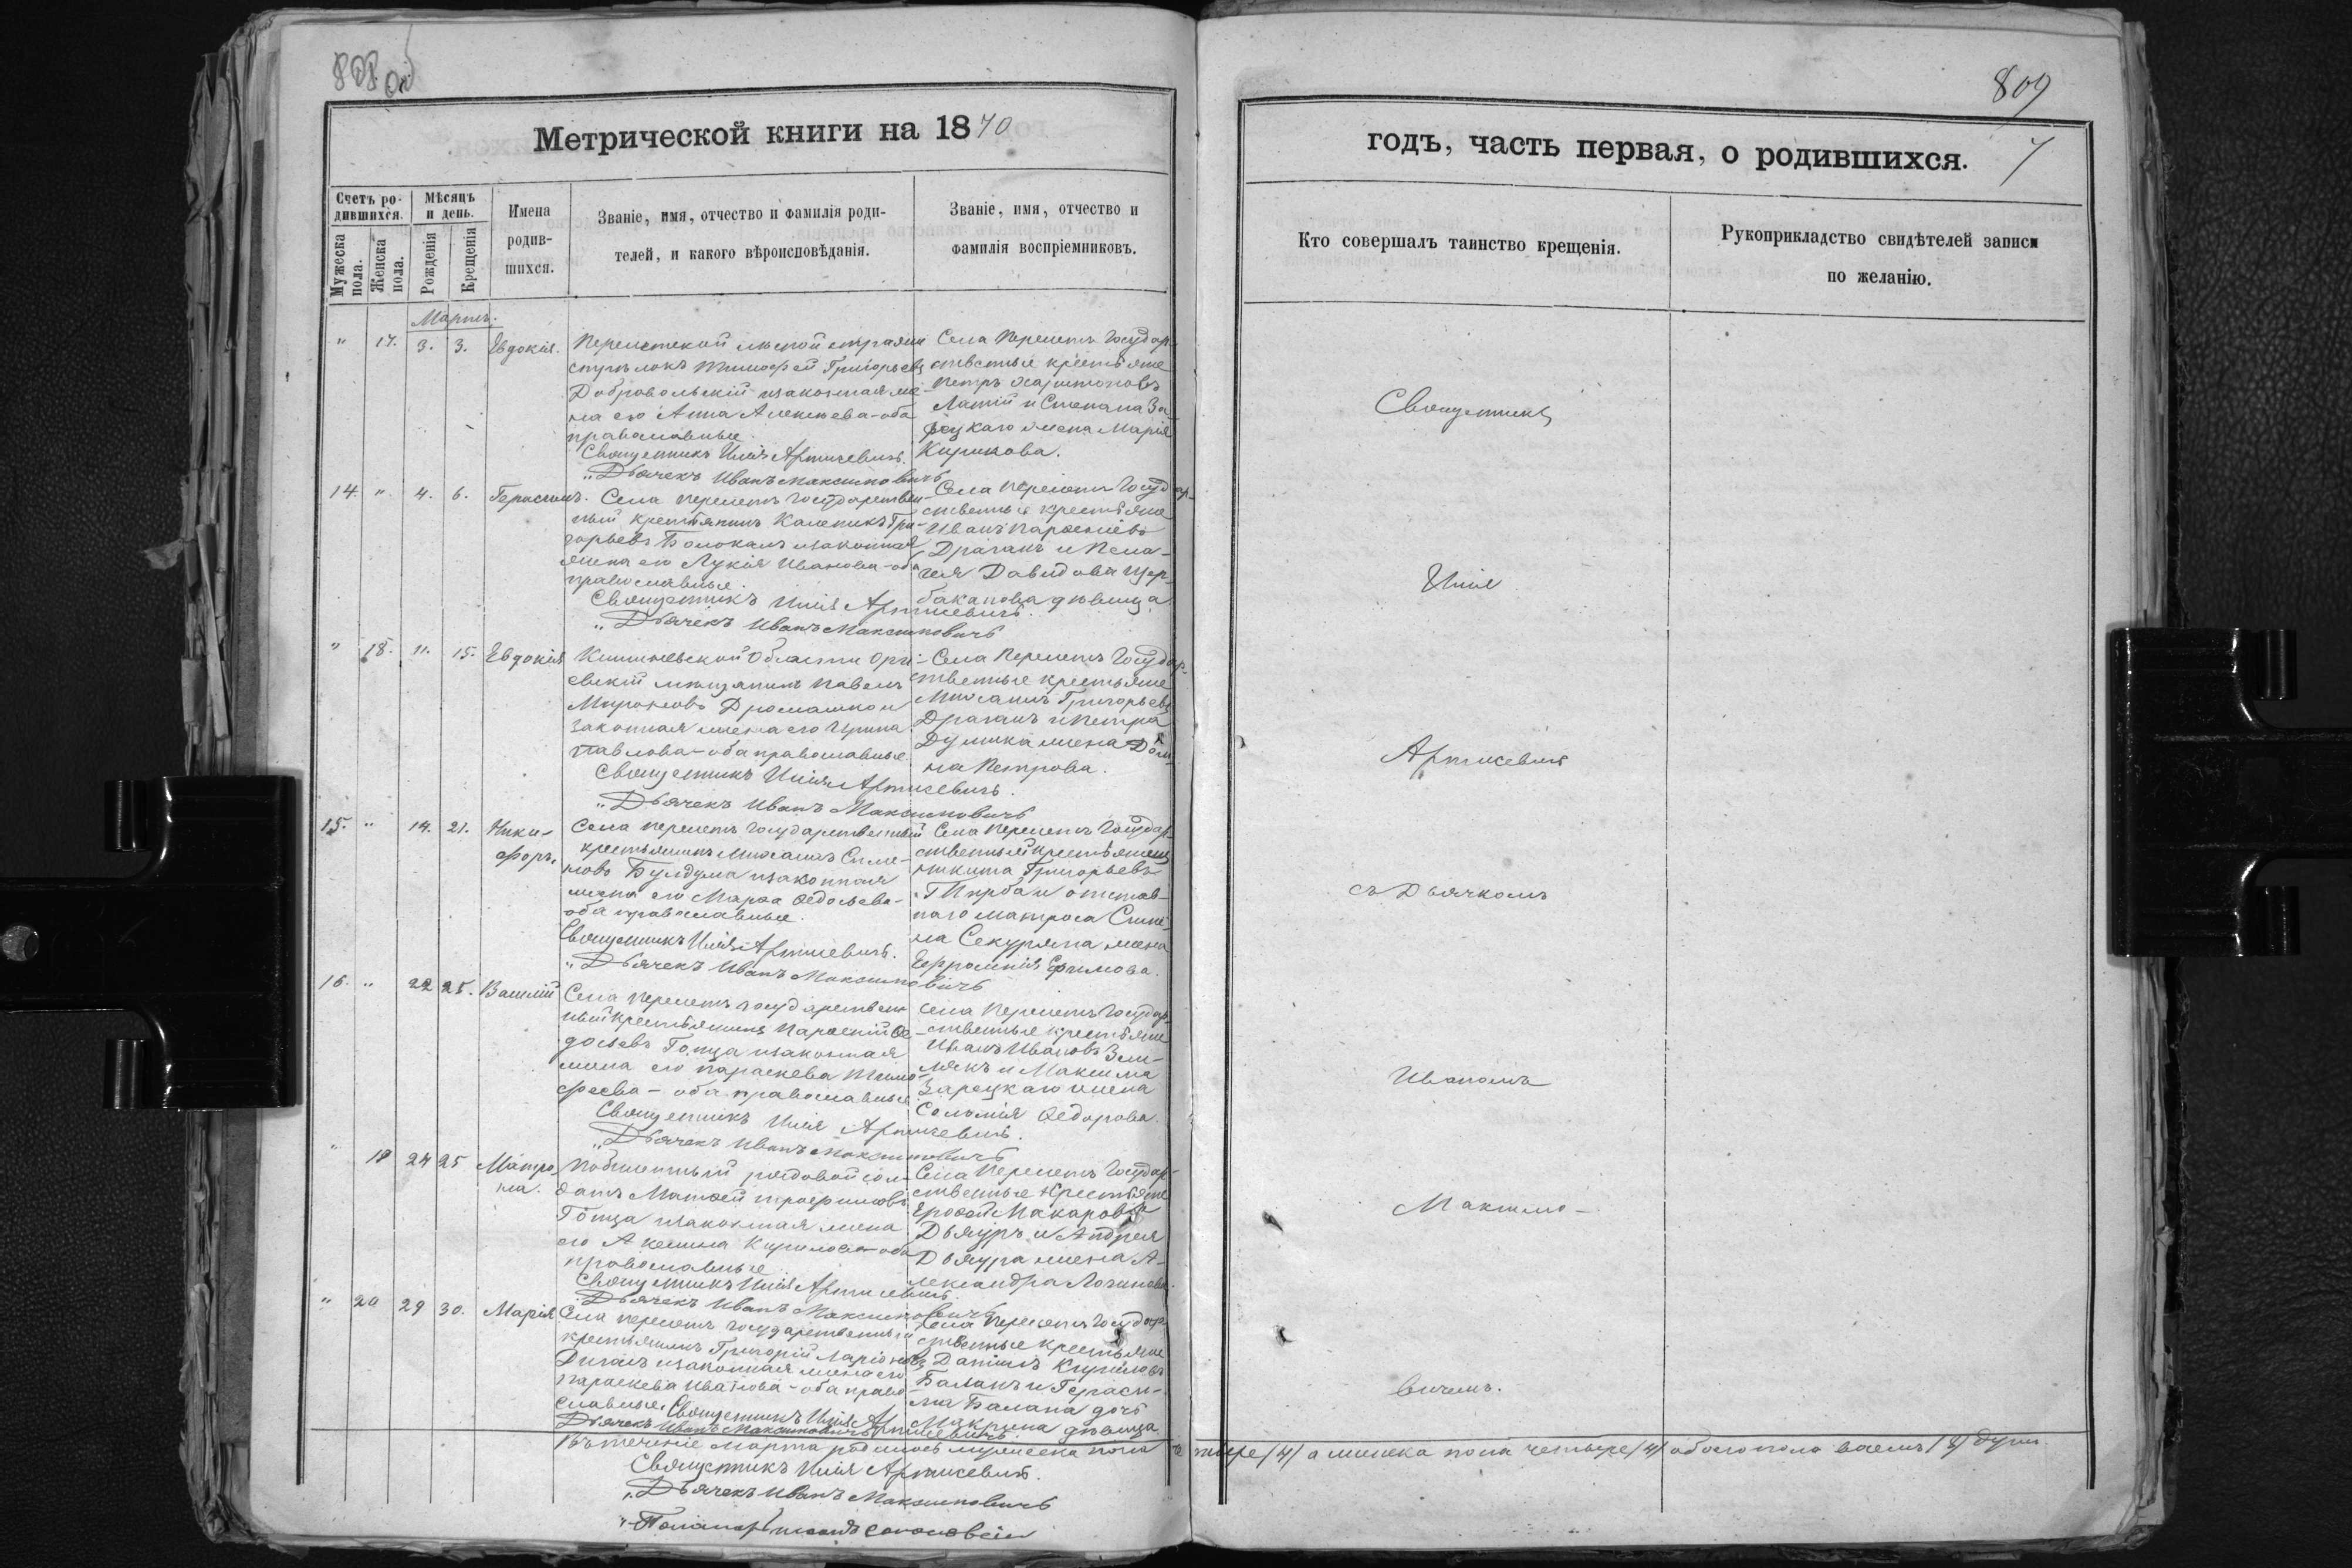 808 об
Метрической книги на 1870
Счетъ родившихся.
Мужеска пола.
Женска пола.
Мѣсяцъ и день.
Рожденія
Крещенія
Имена родившихся.
Званіе, имя, отчество и фамилія родителей, и какого вѣроисповѣданія.
Званіе, имя, отчество и фамилія воспріемниковъ.
Мартъ.
" 17. 3. 3. Евдокія.
стрѣлокъ Тимофей Григорьевъ
Добровольскій и законная же-
на его Анна Алексѣева - оба
православные.
Священникъ Илія Артисевичъ.
"Дьячекъ Иванъ Максимовичъ
Села Перелетъ Государ-
ственные крестьяне
Петръ Харитоновъ
и Степана За-
рецкаго жена Марія
Кирилова.
14. " 4. 6. Герасимъ.
Села Перелетъ Государствен-
ный крестьянинъ Каленикъ Гри-
горьевъ и законная
жена его Лукія Иванова - оба
православные.
Священникъ Илія Артисевичъ.
"Дьячекъ Иванъ Максимовичъ
Села Перелетъ Государ-
ственные крестьяне
Иванъ Парѳеніевъ
Драганъ и Пела-
гея Давидова Щер-
бакапова дѣвица
" 18. 11. 15. Евдокія
Кишиневской Области Орги-
евскій мѣщанинъ Павелъ
Мироновъ и
законная жена его Ирина
Павлова - оба православные.
Священникъ Илія Артисевичъ.
"Дьячекъ Иванъ Максимовичъ
Села Перелетъ Государ-
ственные крестьяне
Михаилъ Григорьевъ
Драганъ и Петра
жена Дом-
на Петрова.
15. " 14. 21. Ники-
форъ.
Села Перелетъ Государственный
крестьянинъ Михаилъ Симе-
новъ Булдума и законная
жена его Марѳа Ѳедосьева -
оба православные.
Священникъ Илія Артисевичъ.
"Дьячекъ Иванъ Максимовичъ
Села Перелетъ Государ-
ственный крестьянинъ
Никита Григорьевъ
и отстав-
наго матроса Симе-
на Секуряна жена
Ефросинія Ефимова.
16. " 22 25. Василій
Села Перелетъ государствен-
ный крестьянинъ Парѳеній Ѳе-
досьевъ Гонца и законная
жена его Параскева Тимо-
феева - оба православные.
Священникъ Илія Артисевичъ.
"Дьячекъ Иванъ Максимовичъ
Села Перелетъ Государ-
ственные крестьяне
Иванъ Ивановъ Зем-
лякъ и Максима
Зарецкаго жена
Соломія Ѳедорова.
" 19 24 25 Матро-
на.
рядовой сол-
датъ Матѳей Трофимовъ
Гонца и законная жена
его Аксинія Кирилова - оба
православные.
Священникъ Илія Артисевичъ.
"Дьячекъ Иванъ Максимовичъ
Села Перелетъ Государ-
ственные крестьяне
Ероѳей Макаровъ
Дьяуръ и Андрея
Дьяура жена А-
лександра Логинова.
" 20 29 30. Марія
Села Перелетъ государственный
крестьянинъ Григорій Ларіоновъ
и законная жена его
Параскева Иванова - оба право-
славные. Священникъ Илія Артисевичъ.
Дьячекъ Иванъ Максимовичъ
Села Перелетъ Государ-
ственные крестьяне
Даніилъ Кириловъ
Баланъ и Гераси-
ма Балана дочь
Макрина дѣвица
Въ теченіе марта родилось мужеска пола четыре /4/ а женска пола четыре /4/ обоего пола восемь /8/ душъ
Священникъ Илія Артисевичъ.
"Дьячекъ Иванъ Максимовичъ
809
годъ, часть первая, о родившихся.
7
Кто совершалъ таинство крещенія.
Рукоприкладство свидѣтелей записи по желанію.
Священникъ
Илія
Артисевичъ
съ Дьячкомъ
Иваномъ
Максимо-
вичемъ.